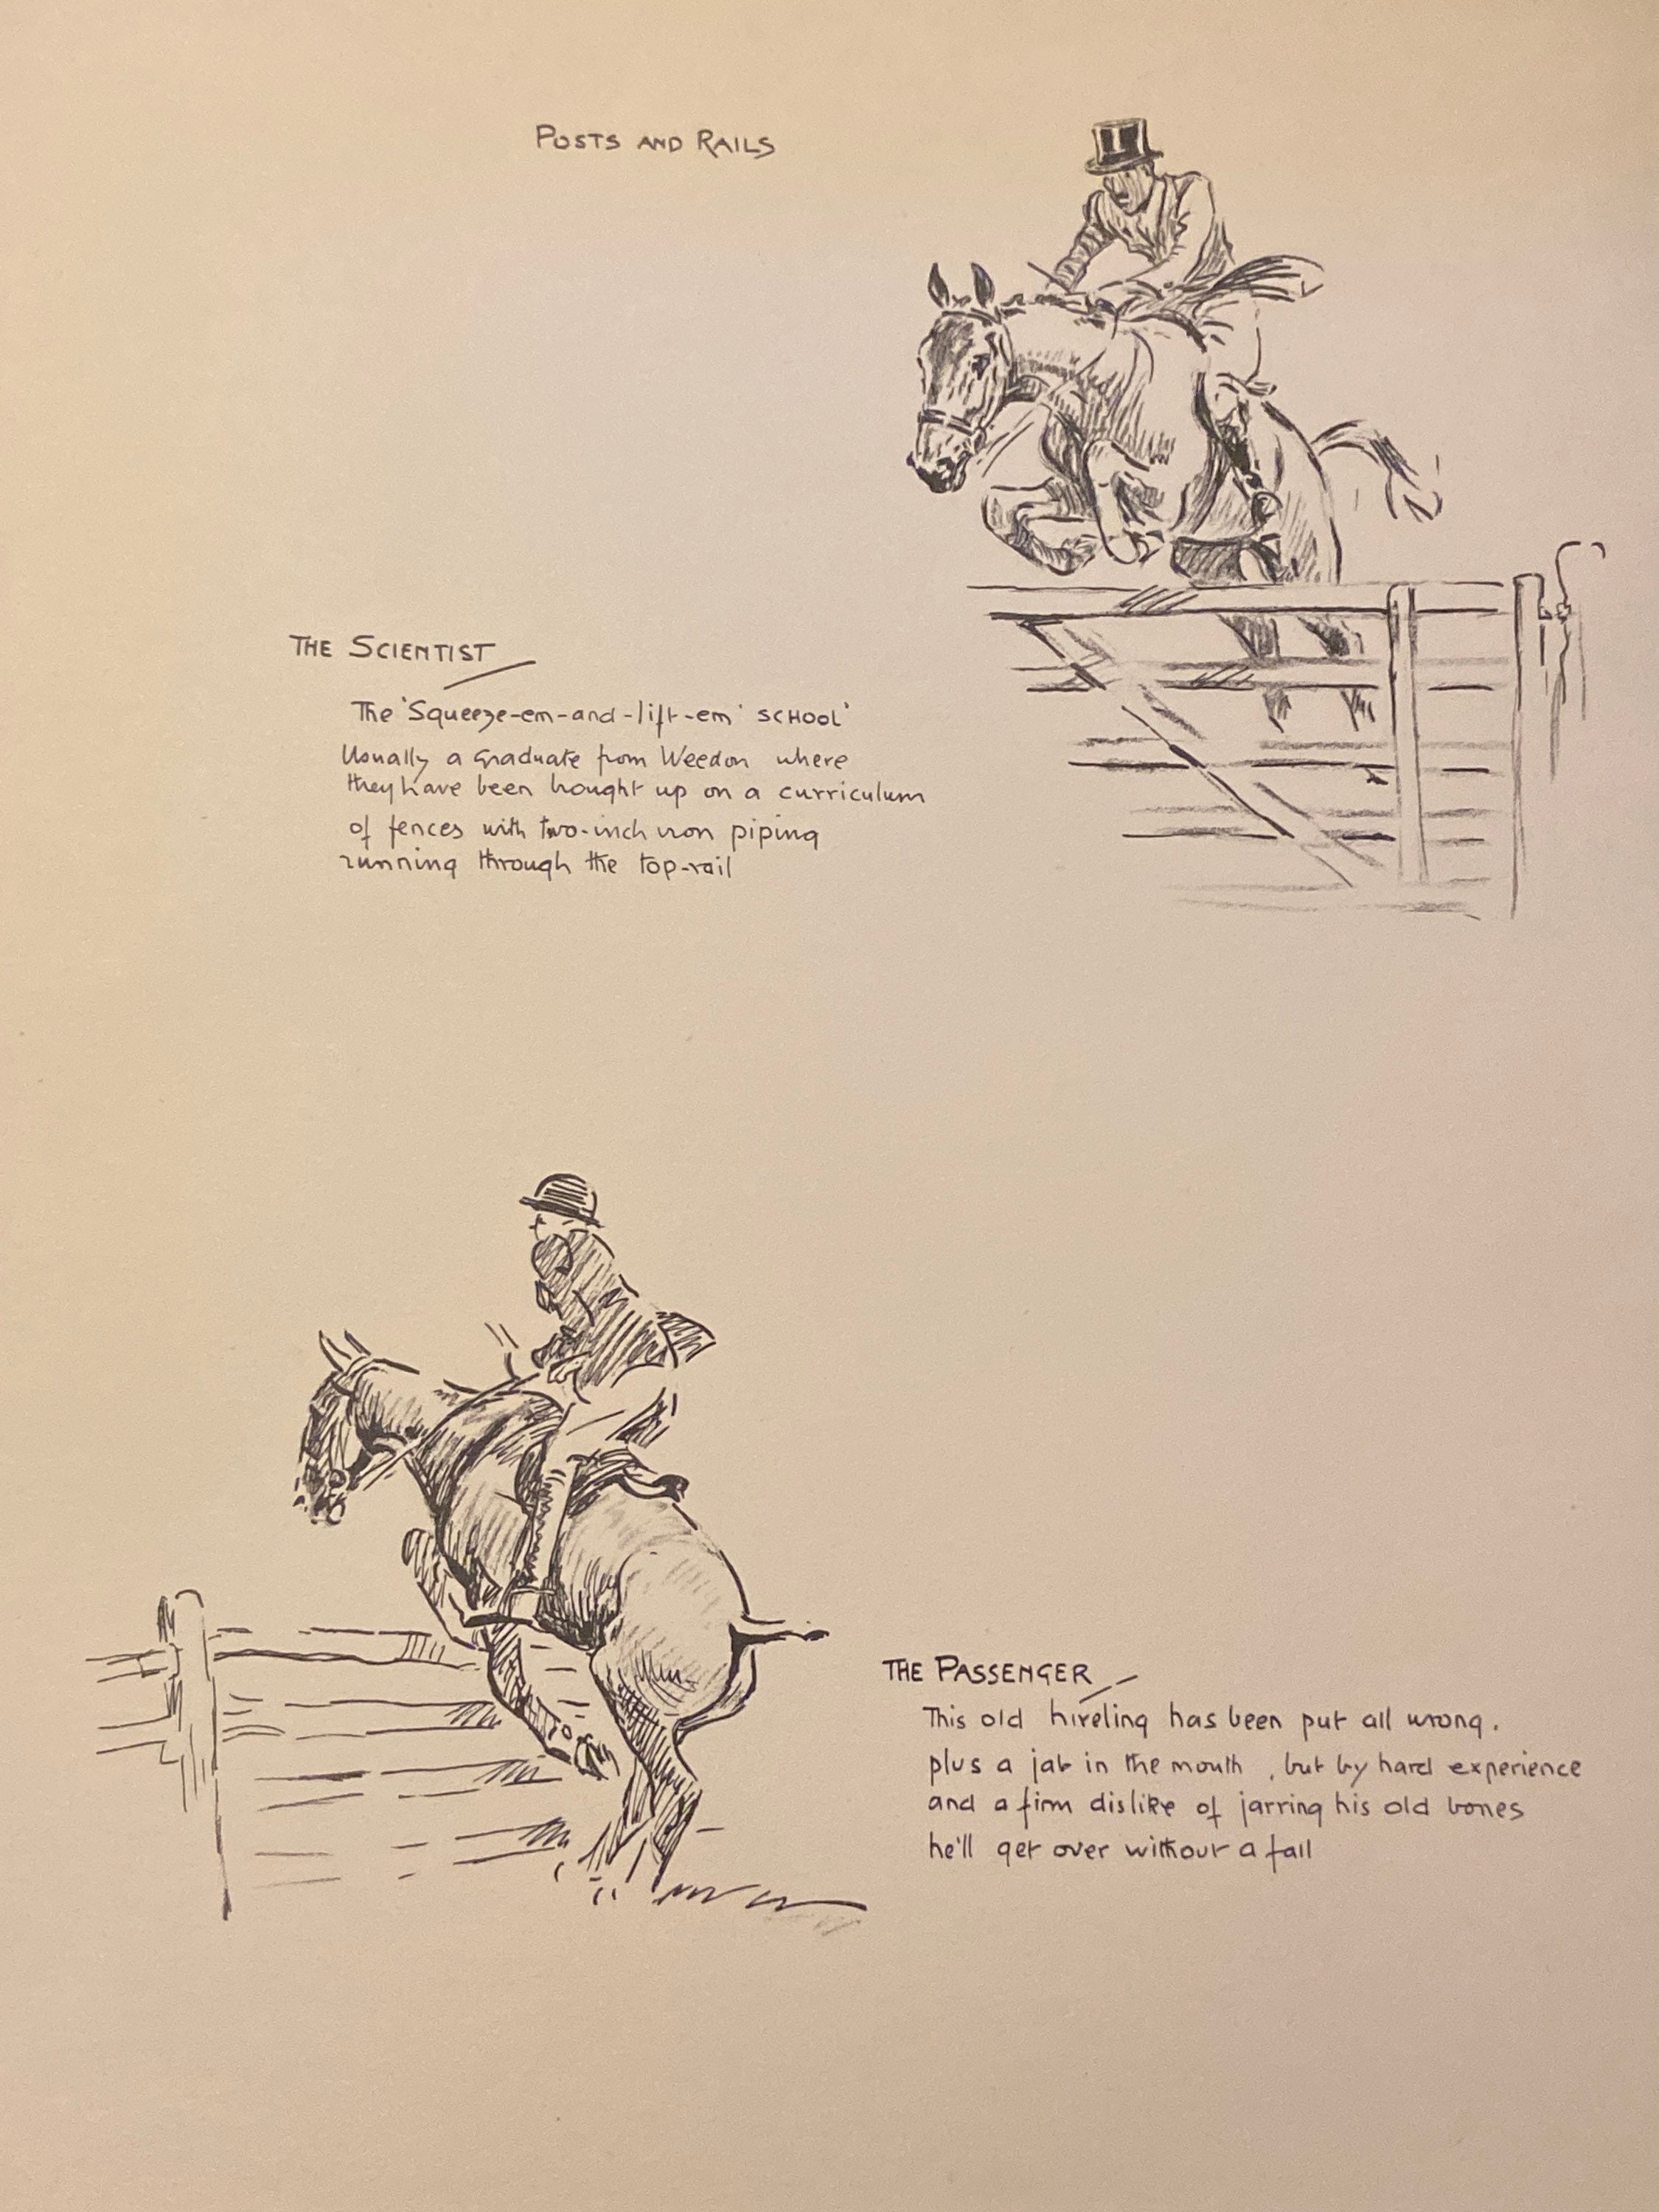 POSTS AND RAILS
THE SCIENTIST
The 'Squeeze-em-and-lift-em' SCHOOL'
Usually a graduate from Weedon where
they have been bought up on a curriculum
of fences with two-inch iron piping
running through the top-rail
THE PASSENGER
This old hireling has been put all wrong.
plus a jab in the mouth, but by hard experience
and a firm dislike of jarring his old bones
he'll get over without a fall